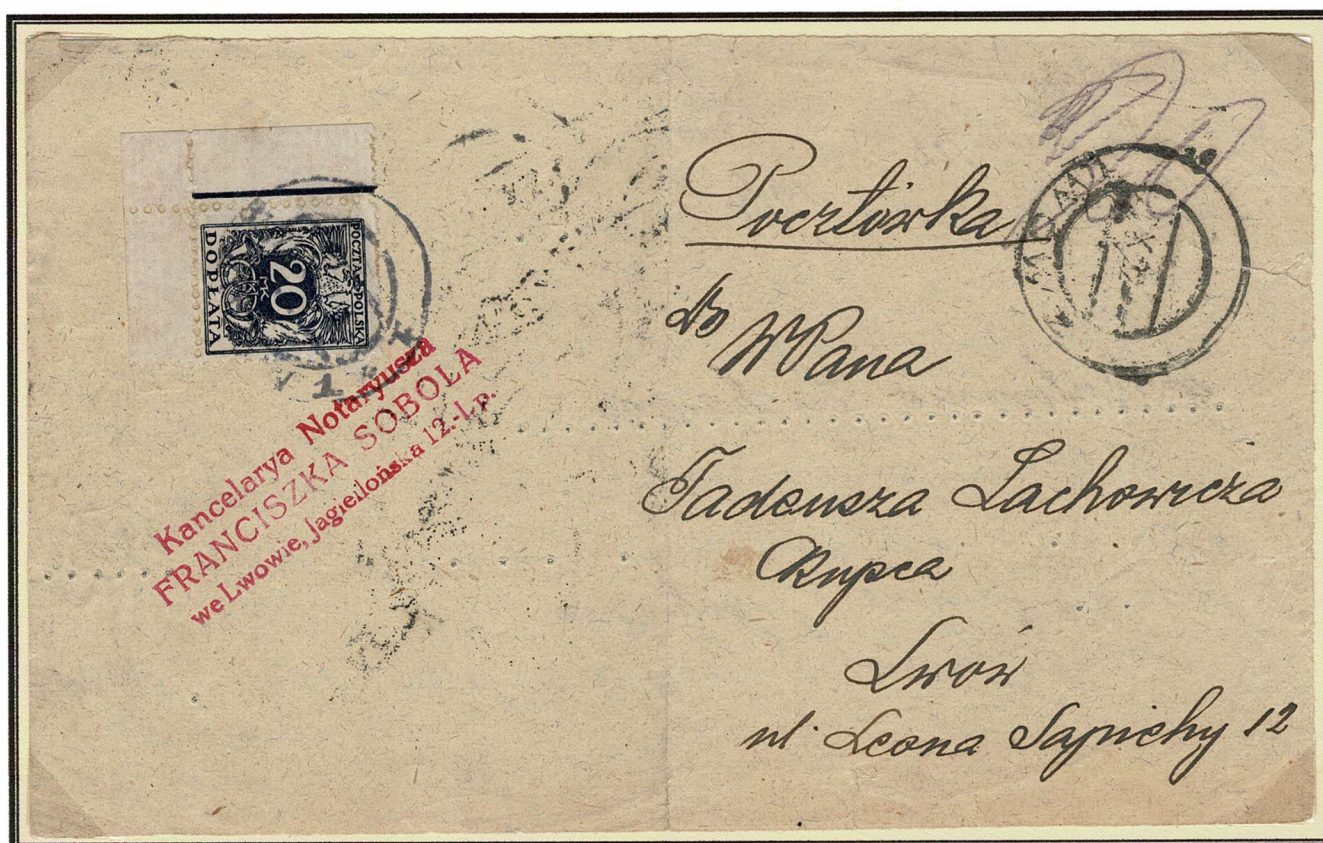 POCZTA POLSKA
20
MK
DOPŁATA
Kancelarya Notaryusza
FRANCISZKA SOBOLA
we Lwowie, Jagiellońska 12.-I. p.
Pocztówka
do
WPana
Tadeusza Lachowicza
Kupca
Lwów
ul. Leona Sapiehy 12